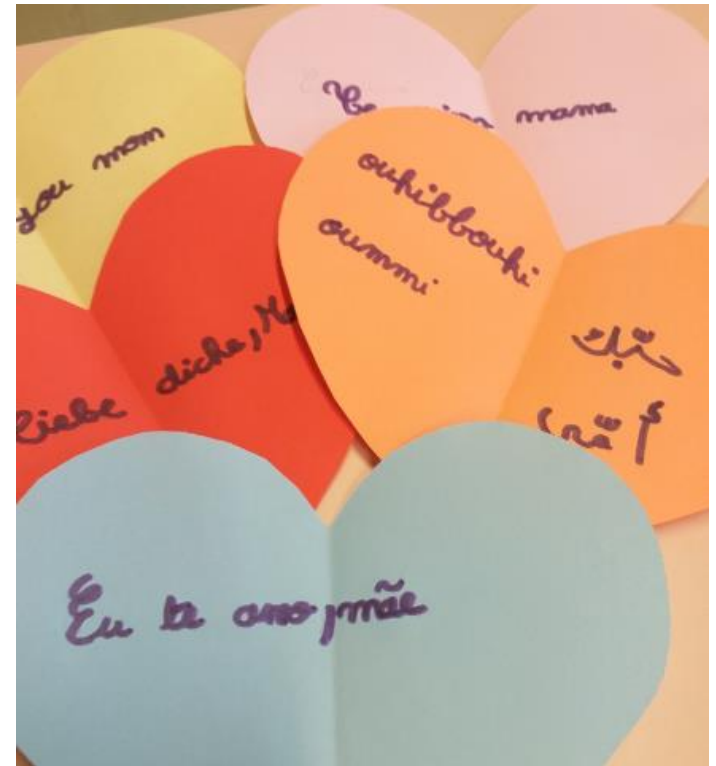 you mom
mama
ouhibbouki
oummi
حبّك
أمّي
liebe diche, Ma
Eu te amo, mãe